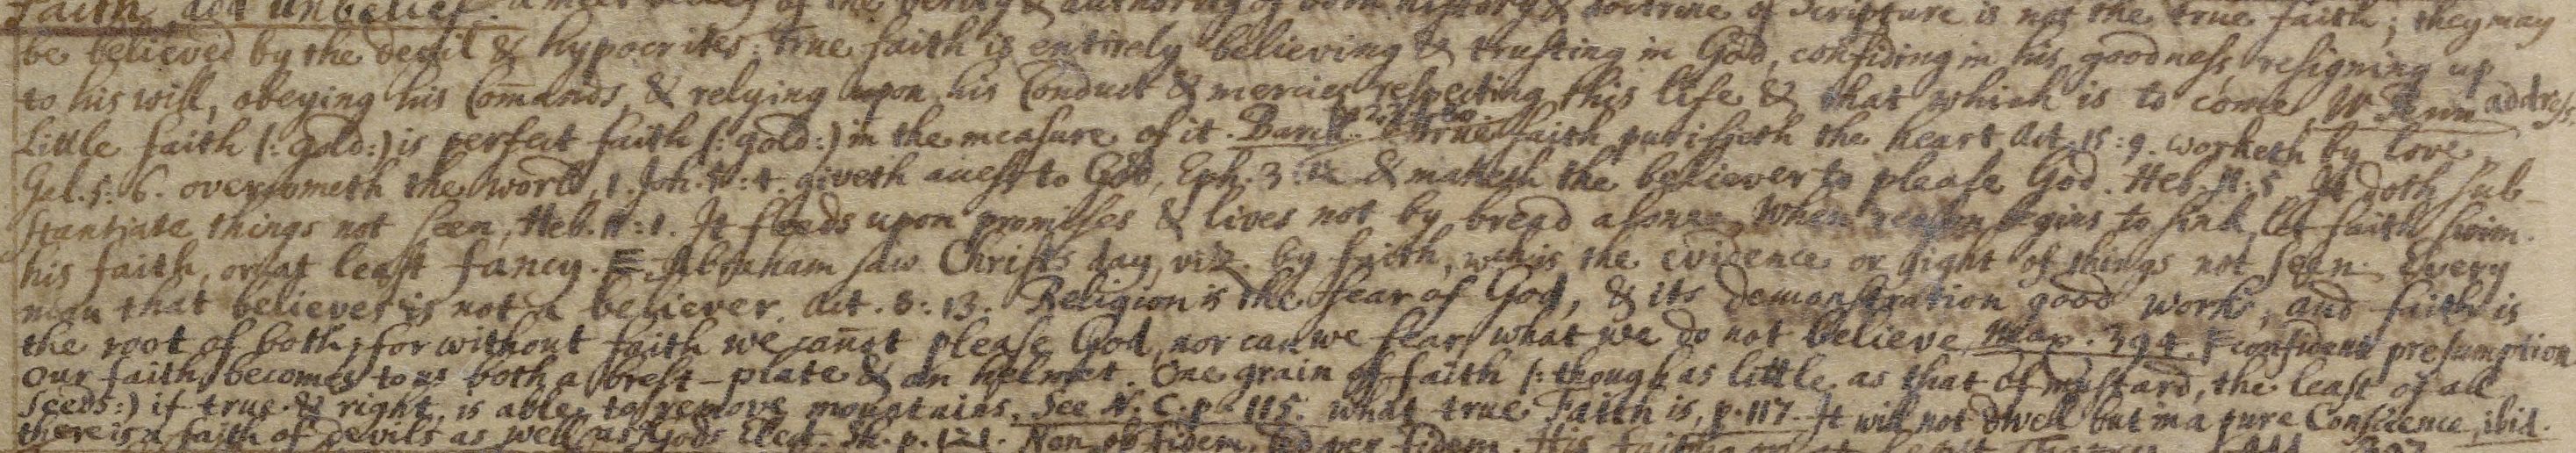 Faith and unbelief. a meer belief of the verity & authority of both history & doctrine of Scripture is not the true faith; they may
be believed by the devil & hypocrites: true faith is entirely believing & trusting in God, confiding in his goodness, resigning up
to his will, obeying his Comands, & relying upon his Conduct & mercies respecting this life & that which is to come, W Penn address,
Little faith (: gold:) is perfect faith (: gold:) in the measure of it. Barcl. True faith purifyeth the heart Act. 15:9. worketh by love,
Gal. 5:6. overcometh the world, 1. Joh. 5:4. giveth access to God, Eph. 3:12 & maketh the believer to please God. Heb. 11:5. It doth sub-
stantiate things not seen, Heb. 11:1. It feeds upon promises & lives not by bread alone. When reason begins to sink, let faith swim.
his faith, or at least fancy. F. Abraham saw Christs day, viz. by faith, wch is the evidence or sight of things not seen. Every
man that believes is not a believer. Act. 8:13. Religion is the fear of God, & its demonstration good works, and faith is
the root of both; for without faith we canot please God, nor can we fear what we do not believe, Max. 394. F confident presumption
Our faith becomes to us both a brest-plate & an helmet. One grain of faith (: though as little as that of mustard, the least of all
seeds:) if true & right, is able to remove mountains. See N. C. p. 115. what true Faith is, p. 117. It will not dwell but in a pure Conscience, ibid.
there is a faith of devils as well as Gods Elect. Sh. p. 121. Non ob fidem, sed per fidem. His faith or at least